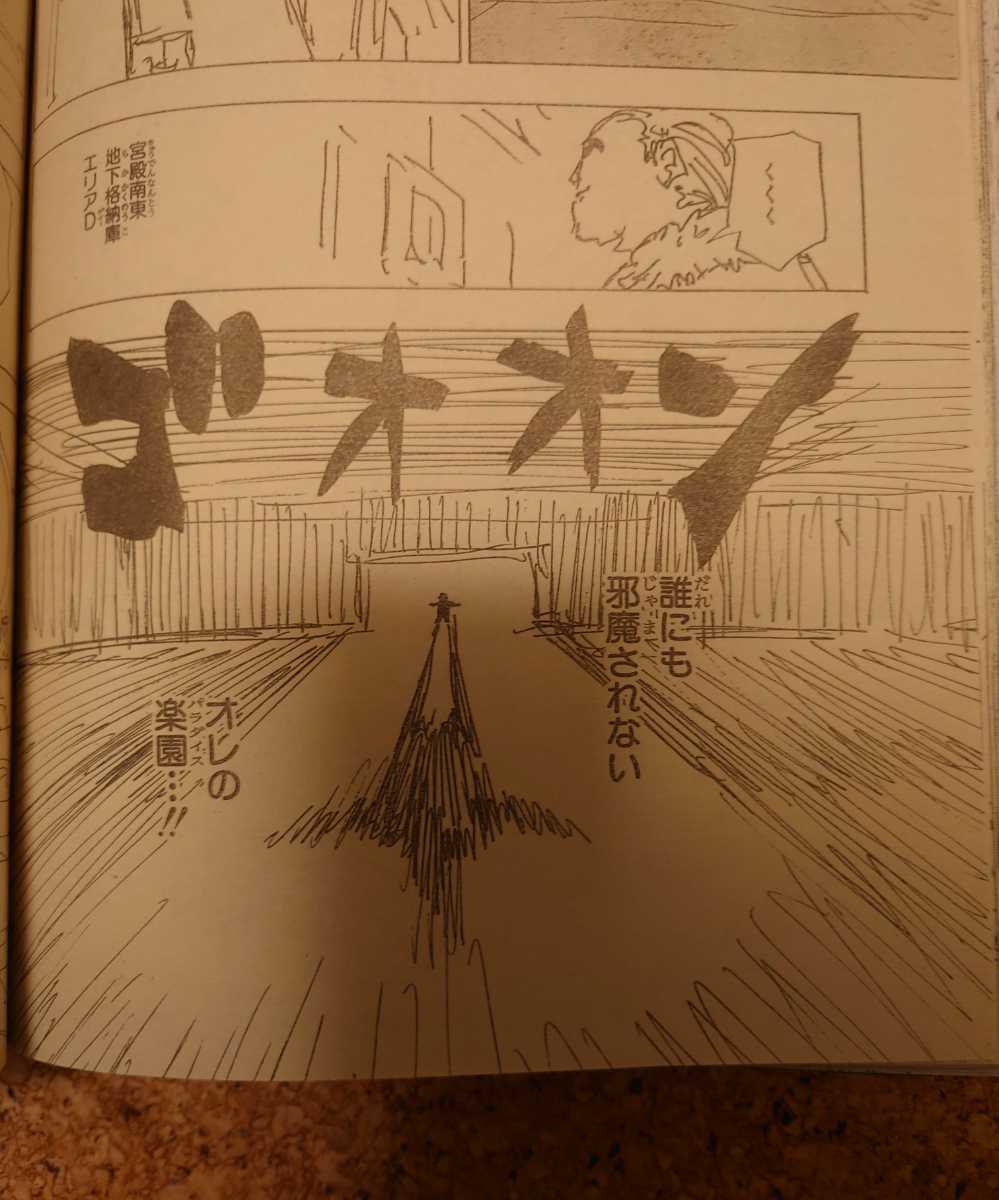 〜〜〜
宮殿南東
地下格納庫
エリアD
ゴオオン
誰にも
邪魔されない
オレの
楽園…!!